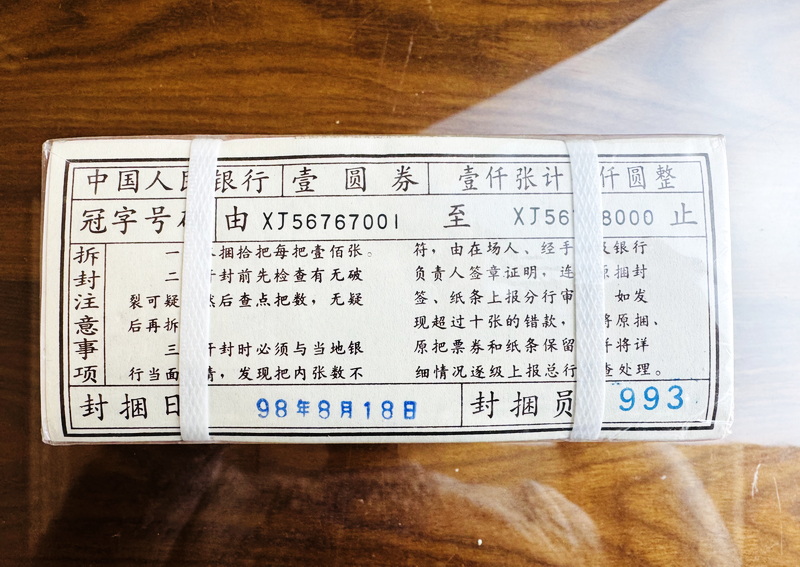 中国人民银行 壹圆券 壹仟张计 仟圆整
冠字号 由 XJ56767001 至 XJ56 8000 止
拆封注意事项
一 捆拾把每把壹佰张。
二 开封前先检查有无破
裂可疑 然后查点把数，无疑
后再拆
三 开封时必须与当地银
行当面 清，发现把内张数不
符，由在场人、经手 及银行
负责人签章证明，连 原捆封
签、纸条上报分行审 如发
现超过十张的错款， 将原捆、
原把票券和纸条保留 并将详
细情况逐级上报总行 查处理。
封捆日 98年8月18日 封捆员 993